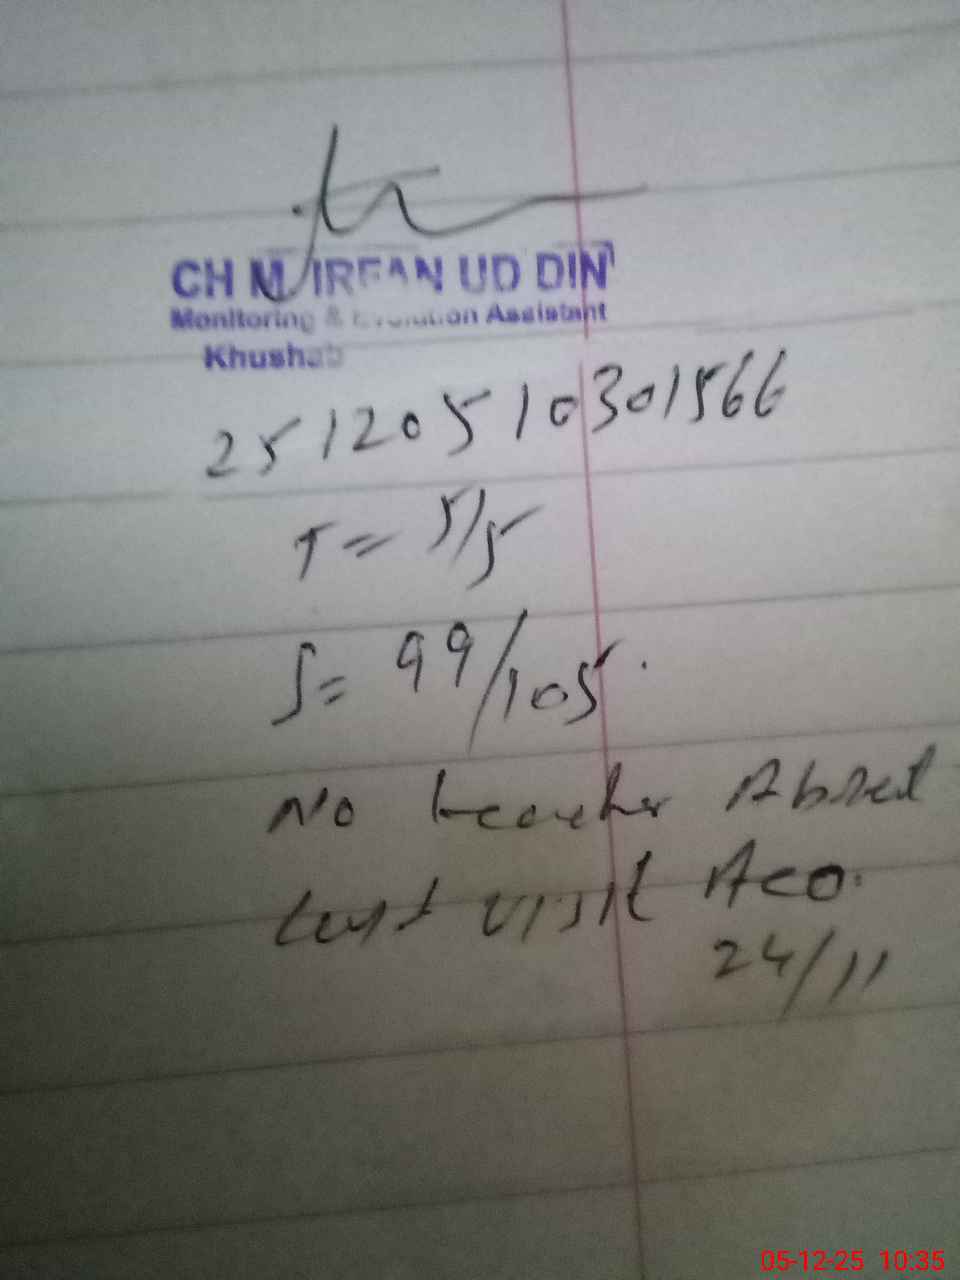 CH M IRFAN UD DIN
Monitoring & Evolution Assistant
Khushab
25120510301566
T = 5/5
S = 99/105.
No teacher Absent
Last visit Aeo.
24/11
05-12-25 10:35